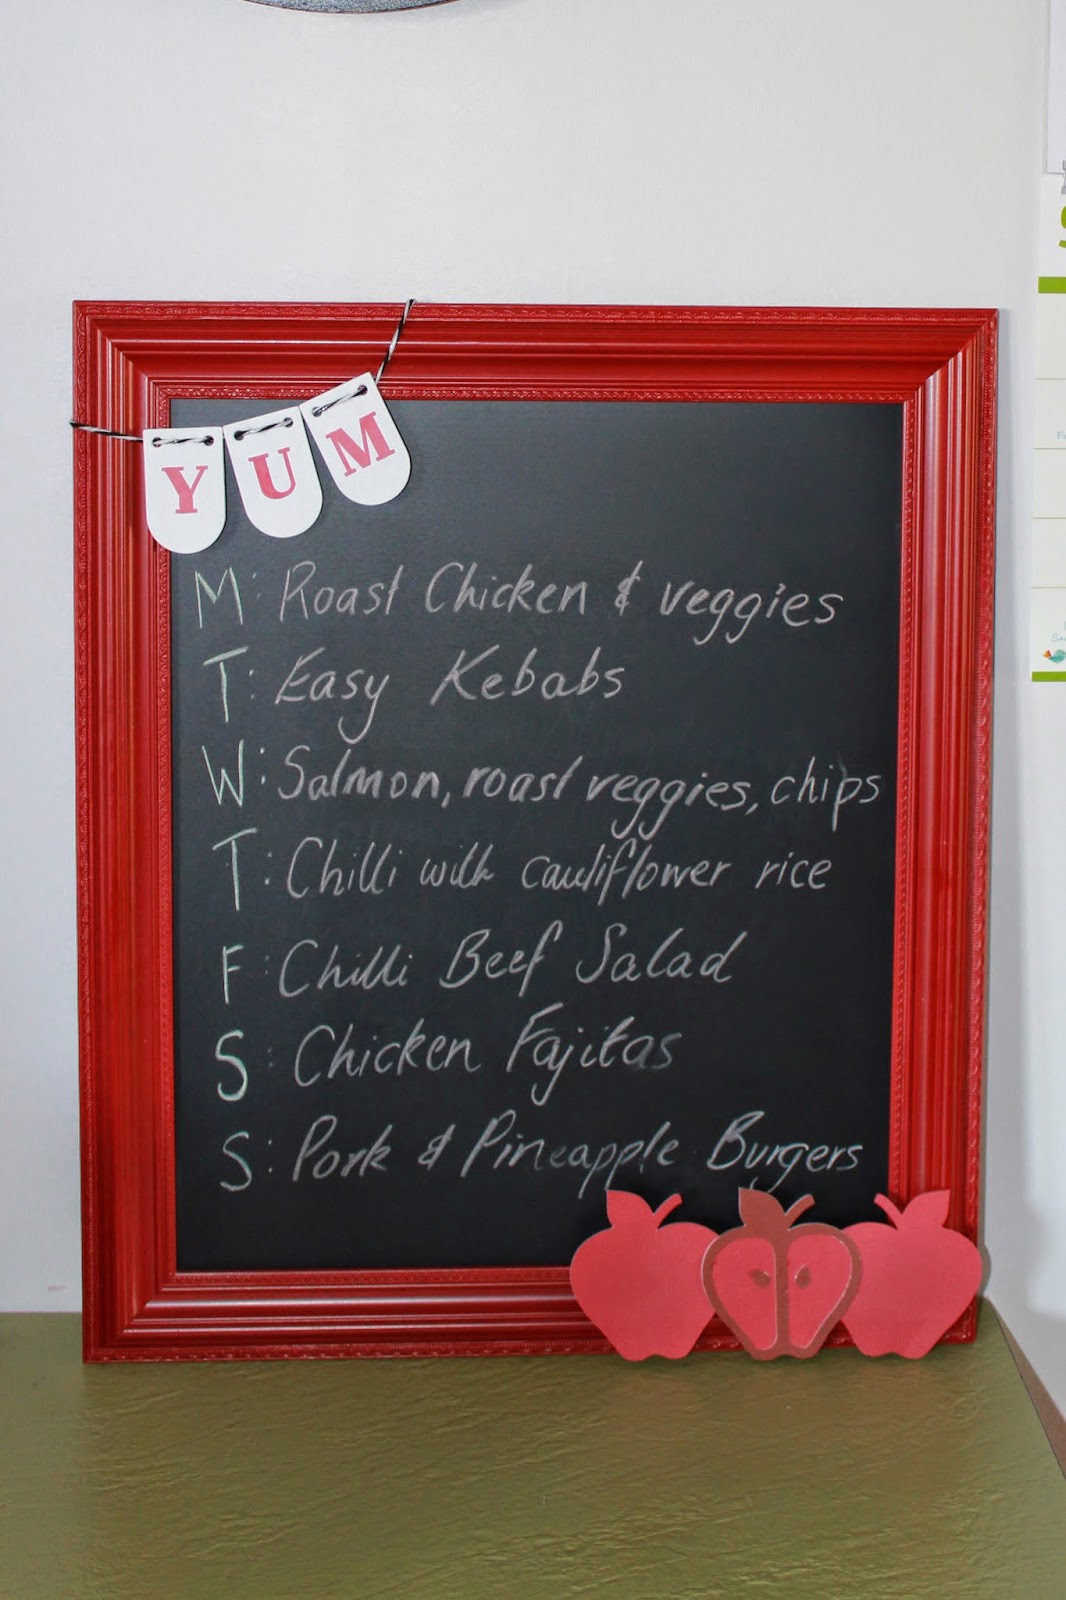 YUM
M: Roast Chicken & veggies
T: Easy Kebabs
W: Salmon, roast veggies, chips
T: Chilli with cauliflower rice
F: Chilli Beef Salad
S: Chicken Fajitas
S: Pork & Pineapple Burgers